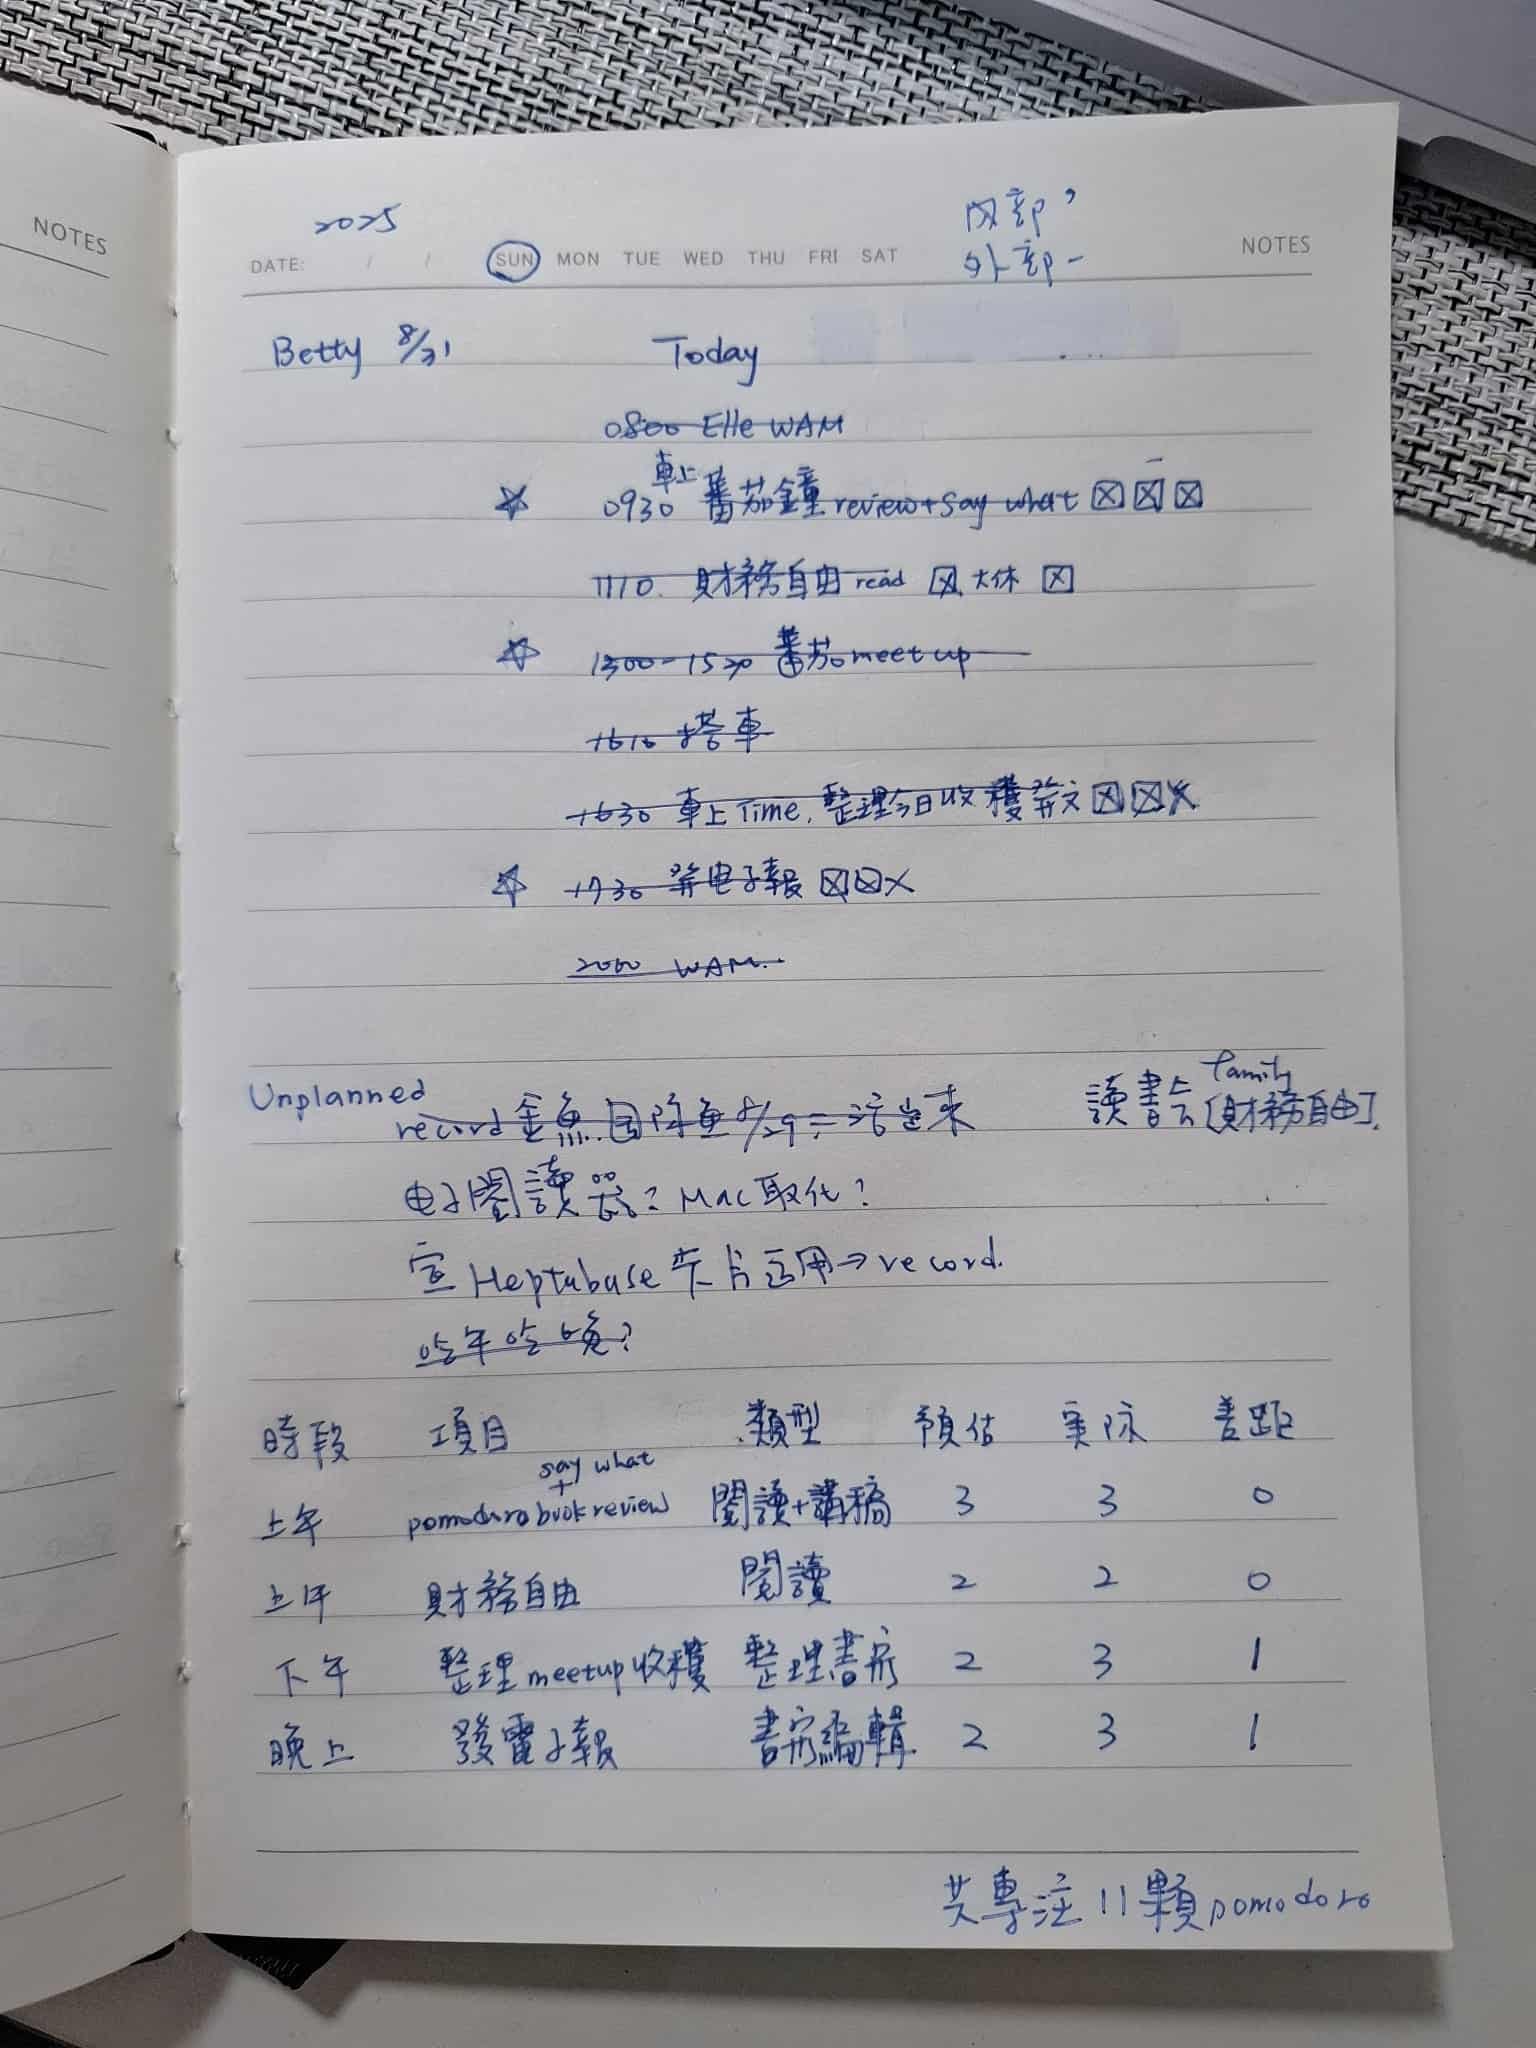 NOTES
2025
內部 '
外部 -
DATE: / / SUN MON TUE WED THU FRI SAT NOTES
Betty 8/31 Today
0800 Elle WAM
車上
☆ 0930 蕃茄鐘 review + say what ☒ ☒ ☒
1110. 財務自由 read ☒ 大休 ☒
☆ 1300-1530 蕃茄 meet up
1610 搭車
1630 車上 Time, 整理今日收穫發文 ☒ ☒ X
☆ 1730 發电子報 ☒ ☒ X
2000 WAM.
Unplanned
record 金魚 8/29 讀書会 family [財務自由].
电子閱讀器? Mac 取代?
Heptabase 卡片 应用 → record.
吃午吃晚?
時段 項目 類型 預估 実际 差距
say what
+
上午 pomodoro book review 閱讀+講稿 3 3 0
上午 財務自由 閱讀 2 2 0
下午 整理 meetup 收穫 整理書寫 2 3 1
晚上 發電子報 書寫編輯 2 3 1
共專注 11 顆 pomodoro